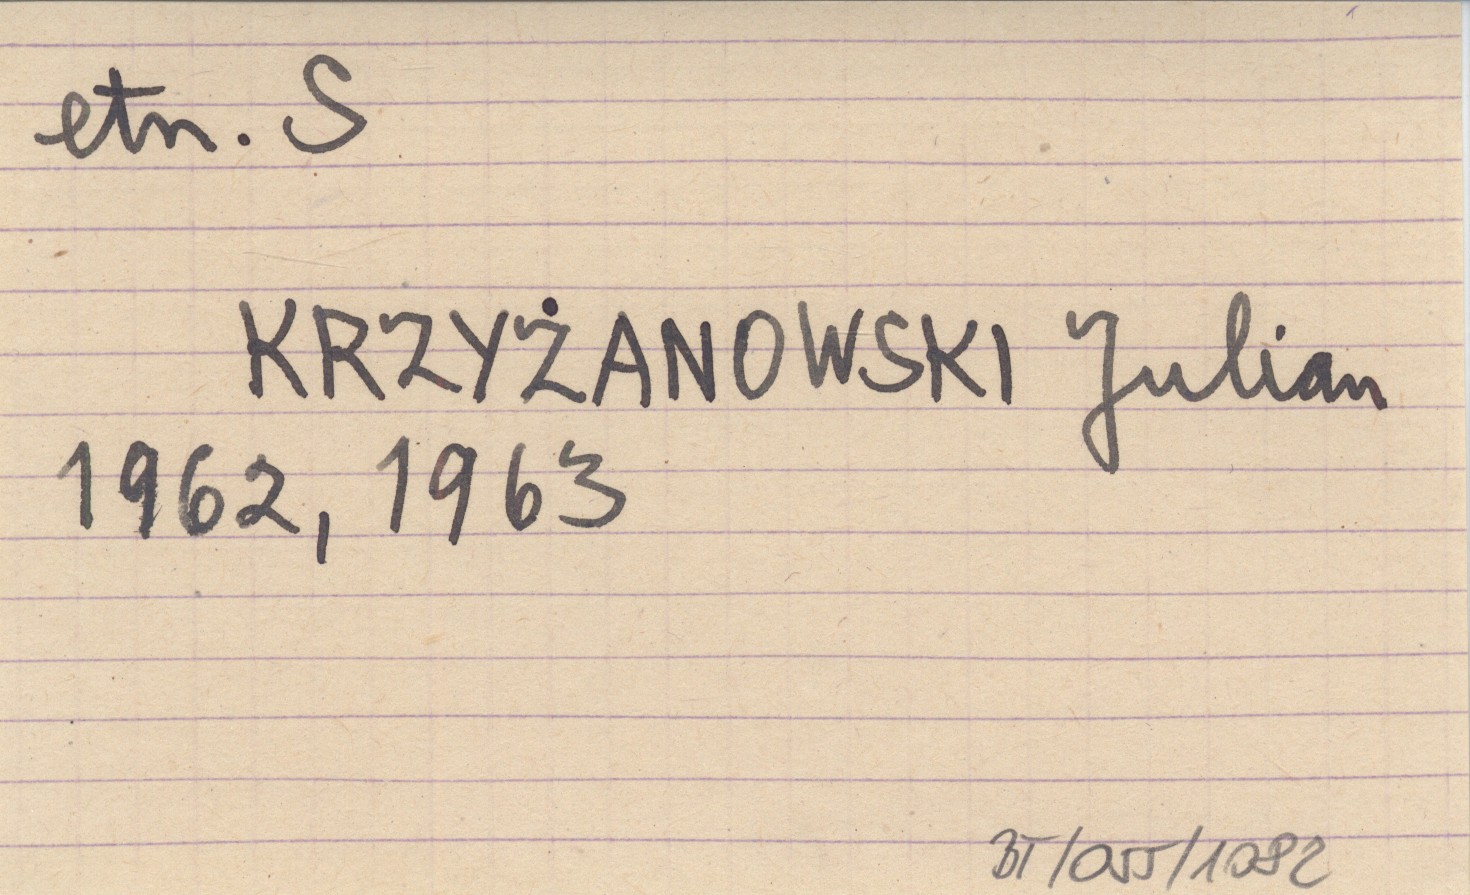 etn. S
KRZYŻANOWSKI Julian
1962, 1963
BT/055/1082